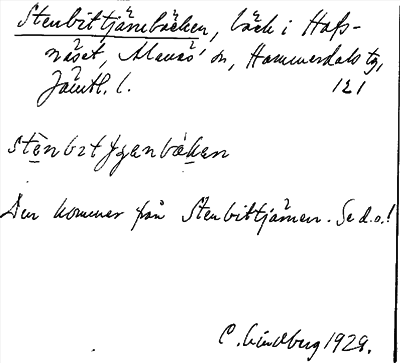 Stenbittjärnbäcken, bäck i Hafs-
näset, Alanäs sn, Hammerdals tg,
Jämtl. l. 121
stènbıtȷ̨enbɛkan
Den kommer från Stenbittjärnen. Se d.o.!
C. Lindberg 1928.